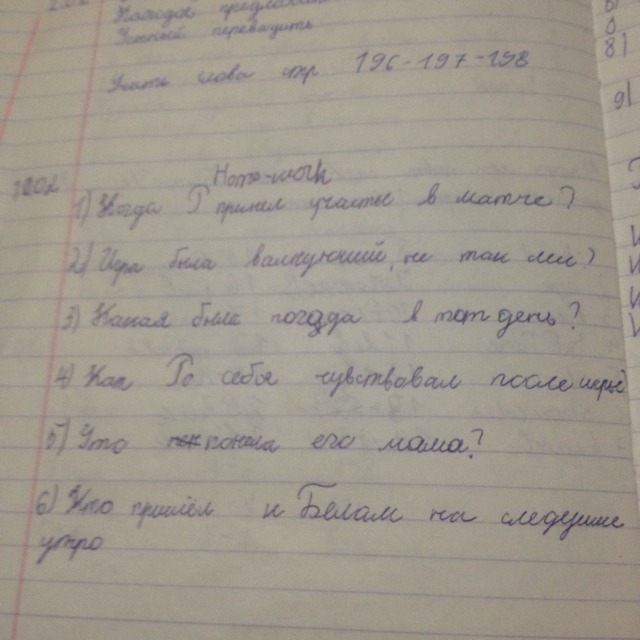 Устный переводить
Учить слова стр 196-197-198
Home-work
1) Когда Г принел участье в матче?
2) Игра была валнующий, не так ли?
3) Какая была погода в тот день?
4) Как Го себя чувствовал после игры
5) Что поняла его мама?
6) Кто пришёл к Белам на следущие
утро
8)
9)